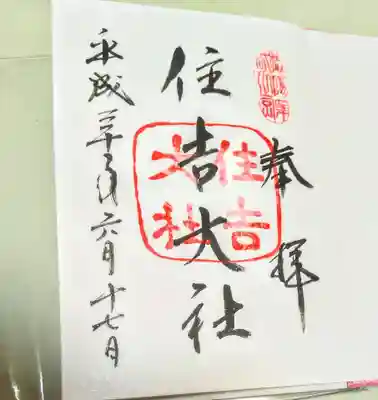 奉拝
住吉大社
住吉
大社
平成三十年六月十七日